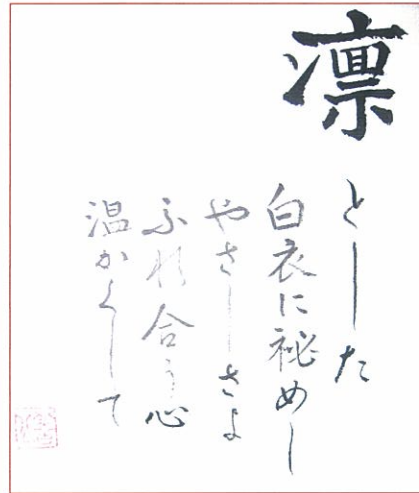 凛
とした
白衣に祕めし
やさしさよ
ふれ合う心
温かくして